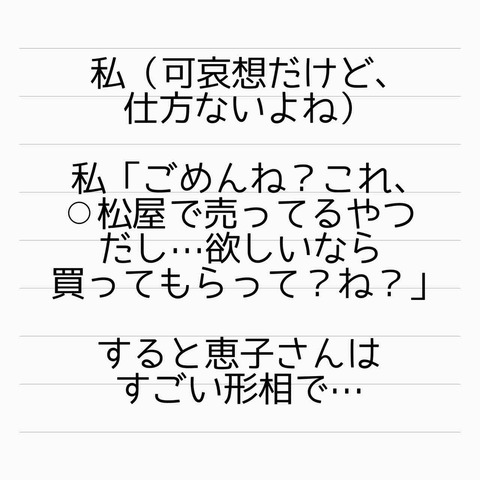 私（可哀想だけど、
仕方ないよね）
私「ごめんね？これ、
○松屋で売ってるやつ
だし…欲しいなら
買ってもらって？ね？」
すると恵子さんは
すごい形相で…